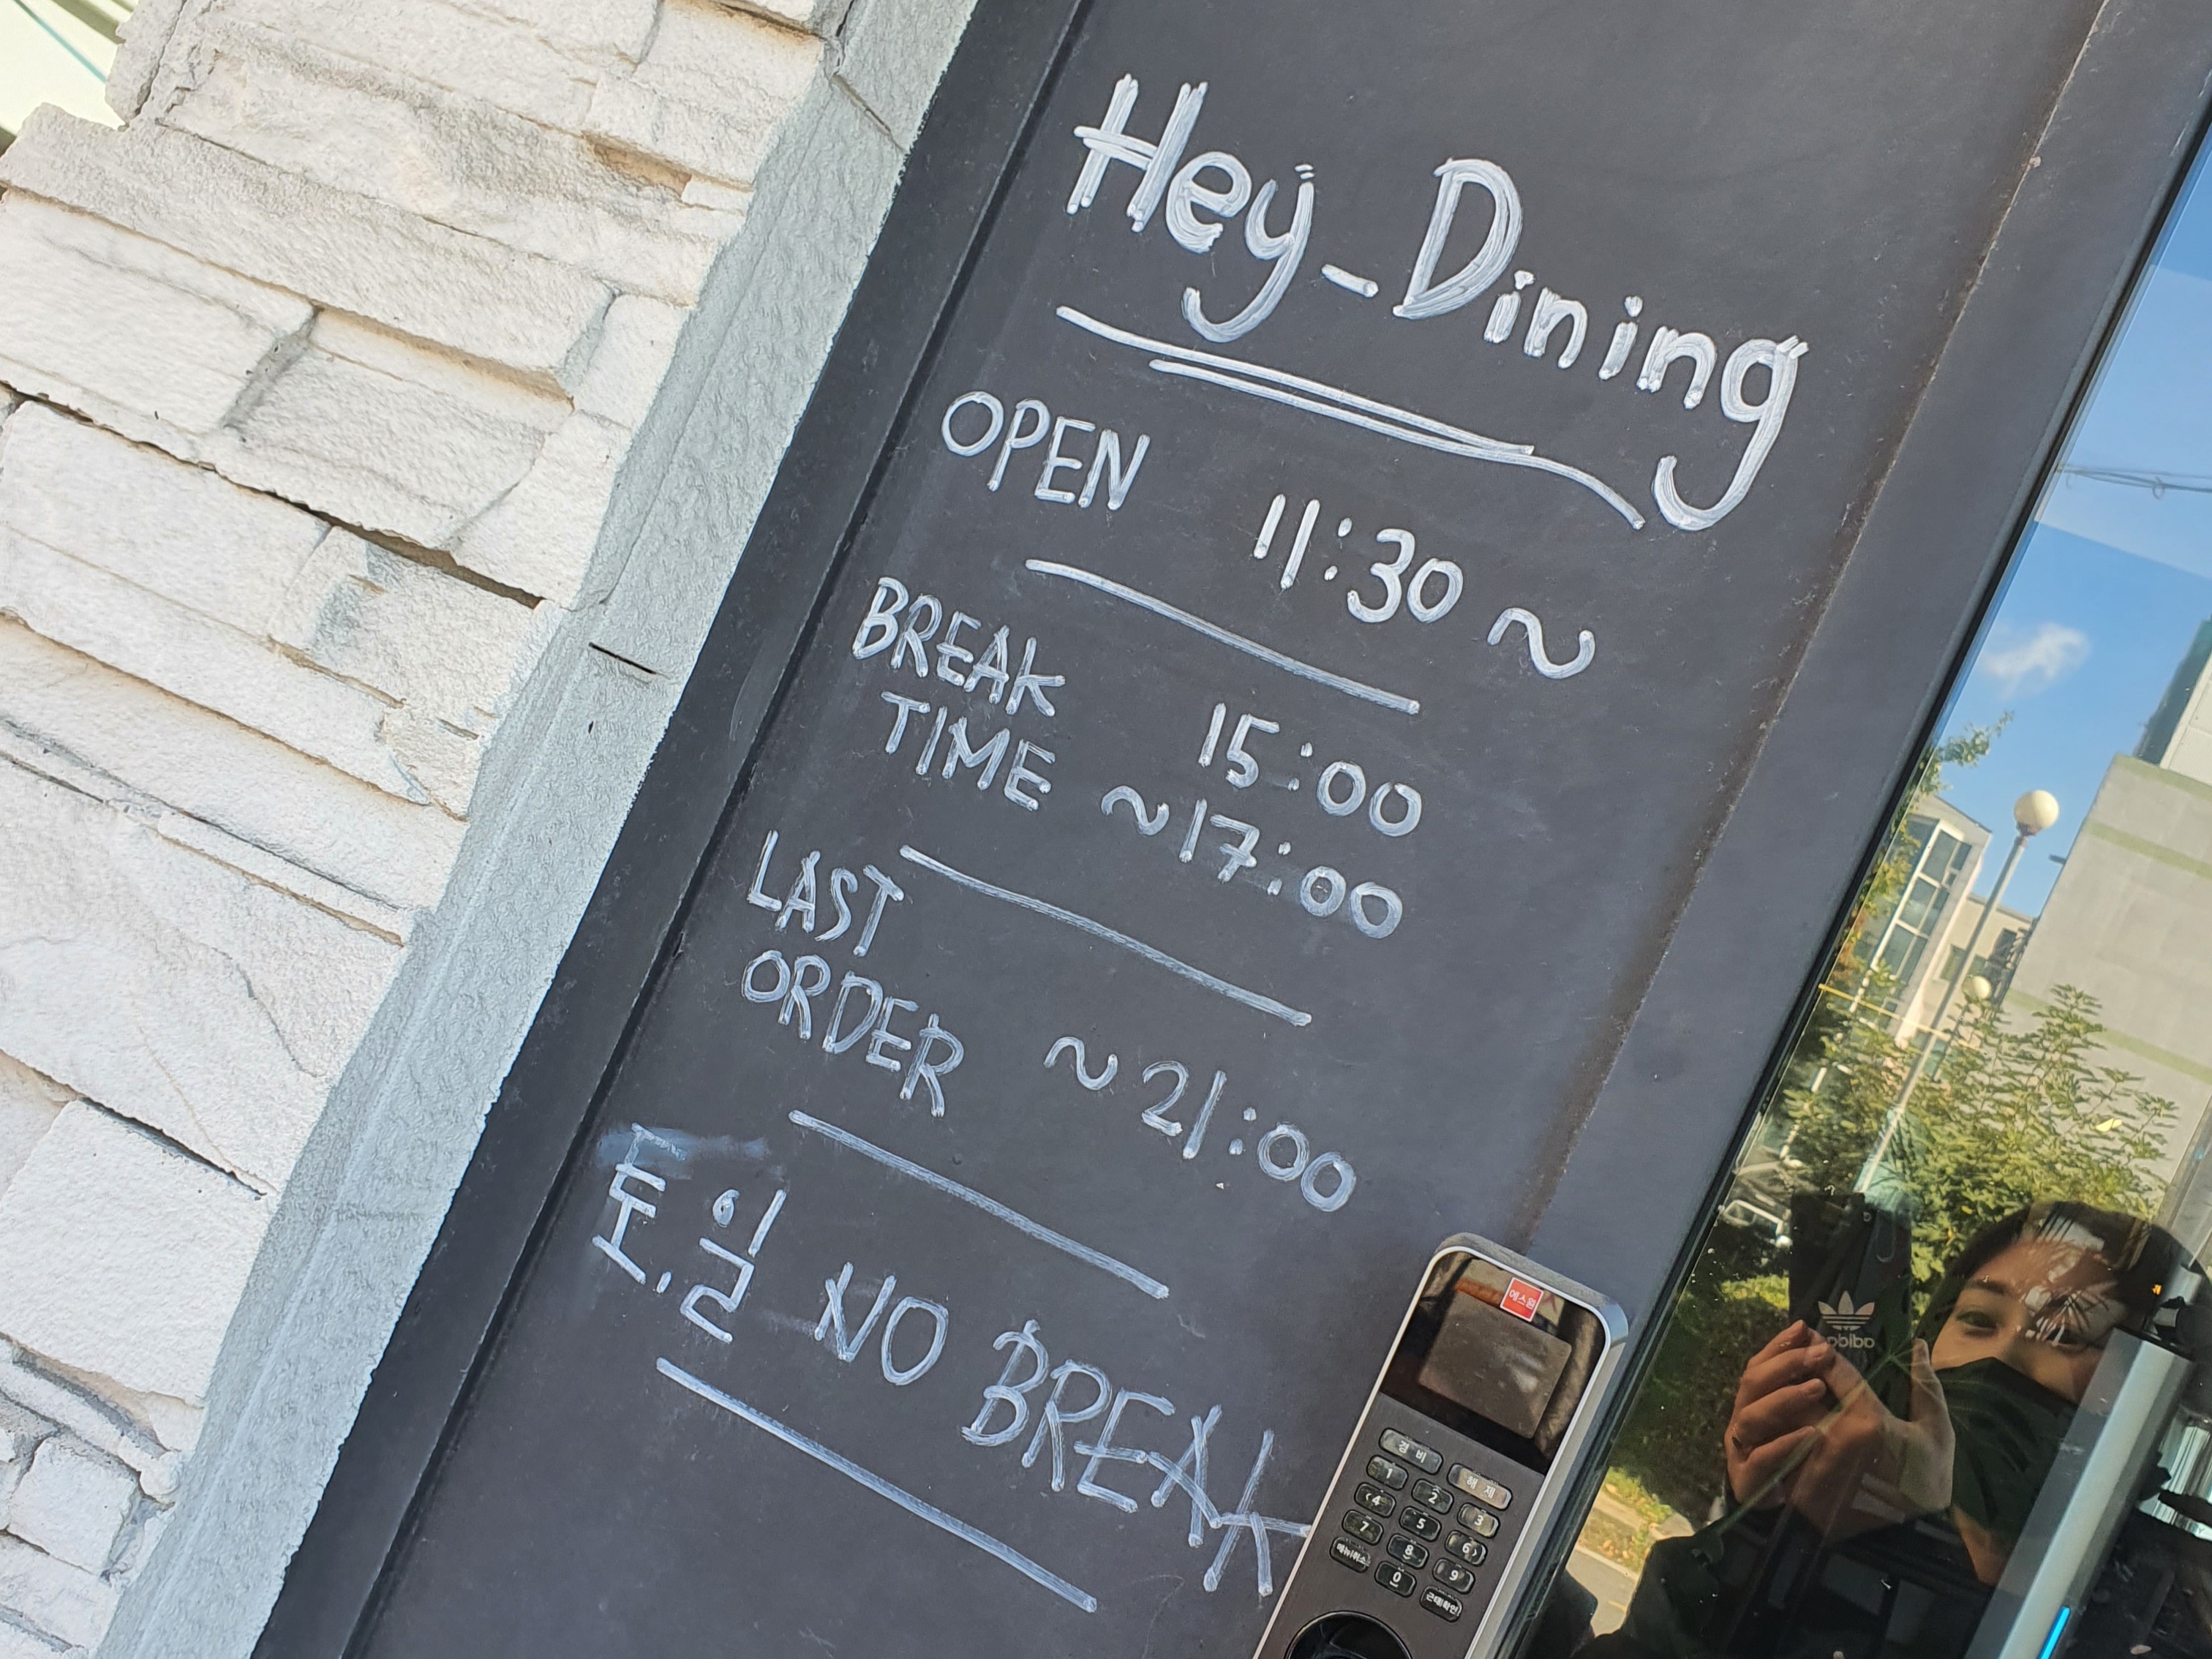 Hey_Dining
OPEN 11:30 ~
BREAK TIME 15:00
~17:00
LAST
ORDER ~21:00
토.일 NO BREAK
에스원
경비 해제
1 2 3
4 5 6
7 8 9
메뉴/취소 0 근태확인
adidas